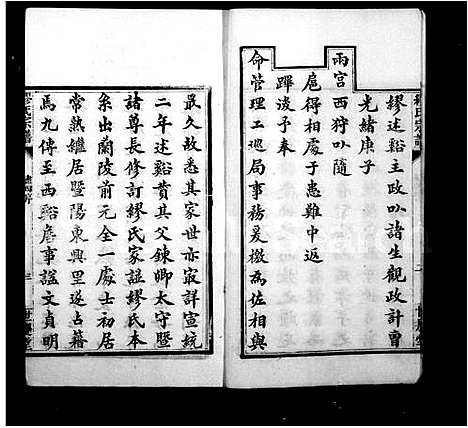 繆述谿主政以諸生觀政計曹
光緒庚子
兩宮西狩以隨
扈得相處于患難中返
蹕後予奉
命管理工巡局事務爰檄為佐相與
最久故悉其家世亦寂詳宣統
二年述谿賛其父錬卿太守暨
諸尊長修訂繆氏家譜繆氏本
系出蘭陵前元全一處士初居
常熟繼居暨陽東興里遂占籍
焉九傳至西谿詹事謚文貞明
繆氏宗譜